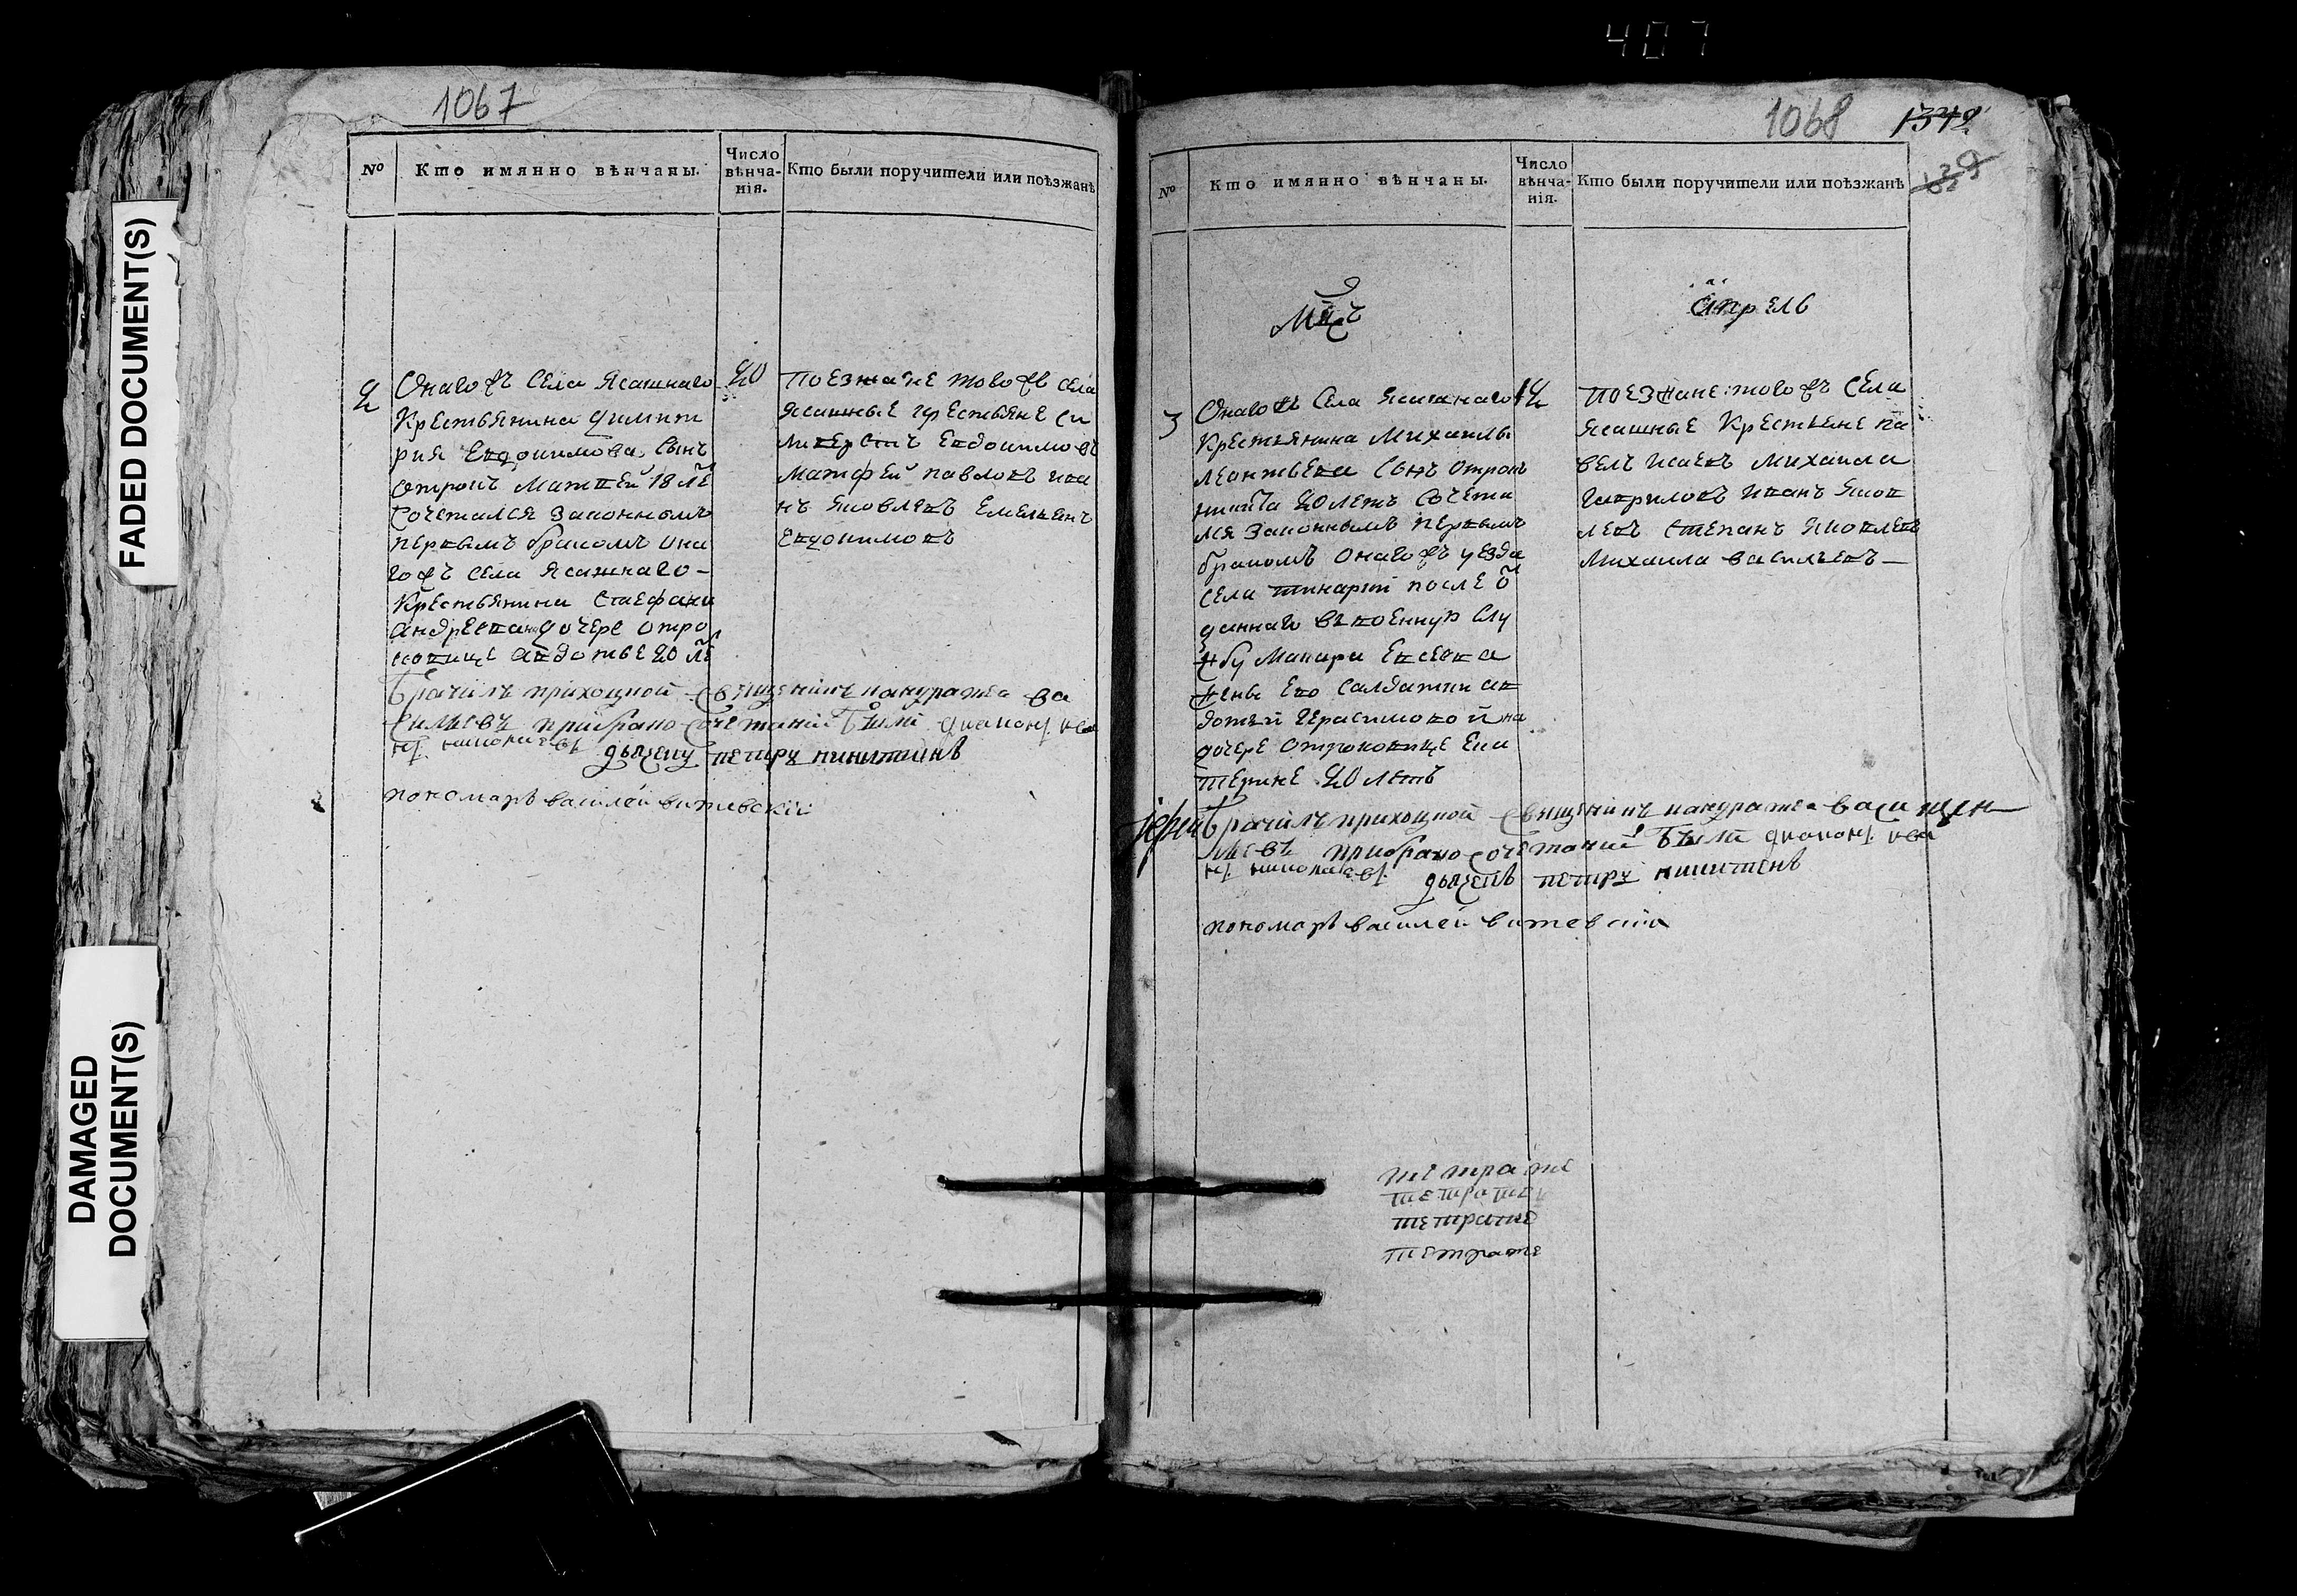 407
FADED DOCUMENT(S)
DAMAGED
DOCUMENT(S)
1067
№
Кто имянно вѣнчаны.
Число
вѣнча-
нія.
Кто были поручители или поѣзжанѣ
2
Онагожъ села Ясашнаго
крестьянина Димит
рия Евдокимова сынъ
отрокъ Матвей 18 ле
сочетался законнымъ
первымъ бракомъ она
гожъ села Ясашнаго -
крестьянина Стефана
Андреева дочере отро
ковице Авдотье 20 ле
20
поезжане тогожъ села
Ясашные крестьяне
Евдокимовъ
Матфей Павловъ Ива
нъ Яковлевъ Емельянъ
Евдокимовъ
Брачилъ приходской священникъ Ва
сильевъ при браносочетании были диаконъ Ива
нъ Николаевъ
дьячекъ Петръ Никитинъ
пономарь Василей Витевский
1068
1348
№
Кто имянно вѣнчаны.
Число
вѣнча-
нія.
Кто были поручители или поѣзжанѣ
Мцъ
апрель
3
Онагожъ села Ясашнаго
крестьянина Михаилы
Леонтьева сынъ отрокъ
Никита 20 летъ сочета
лся законнымъ первымъ
бракомъ онагожъ уезда
села после о
даннаго въ военную слу
жбу Макара Евсева
жены ево салдатки Ав
дотьи Герасимовой
дочере отроковице Ека
терине 20 летъ
12
поезжане тогожъ села
Ясашные крестьяне Па
велъ Исаевъ Михаила
Гавриловъ Иванъ Яков
левъ Степанъ Яковлевъ
Михаила Васильевъ -
Брачилъ приходской священникъ Васи
льевъ при браносочетании были диаконъ Ива
нъ Николаевъ
дьячекъ Петръ Никитинъ
пономарь Василей Витевский